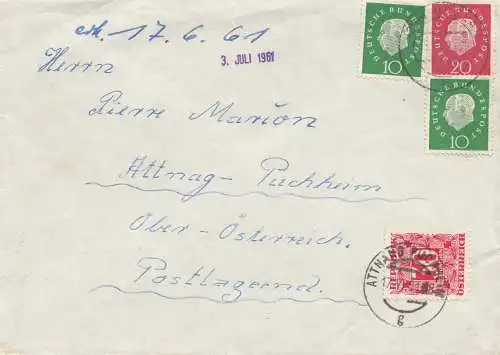 erh. 17. 6. 61
3. JULI 1961
Herrn
Pierre Marion
Attnag-Puchheim
Ober-Österreich.
Postlagernd.
DEUTSCHE BUNDESPOST
10
DEUTSCHE BUNDESPOST
20
DEUTSCHE BUNDESPOST
10
ATTNANG